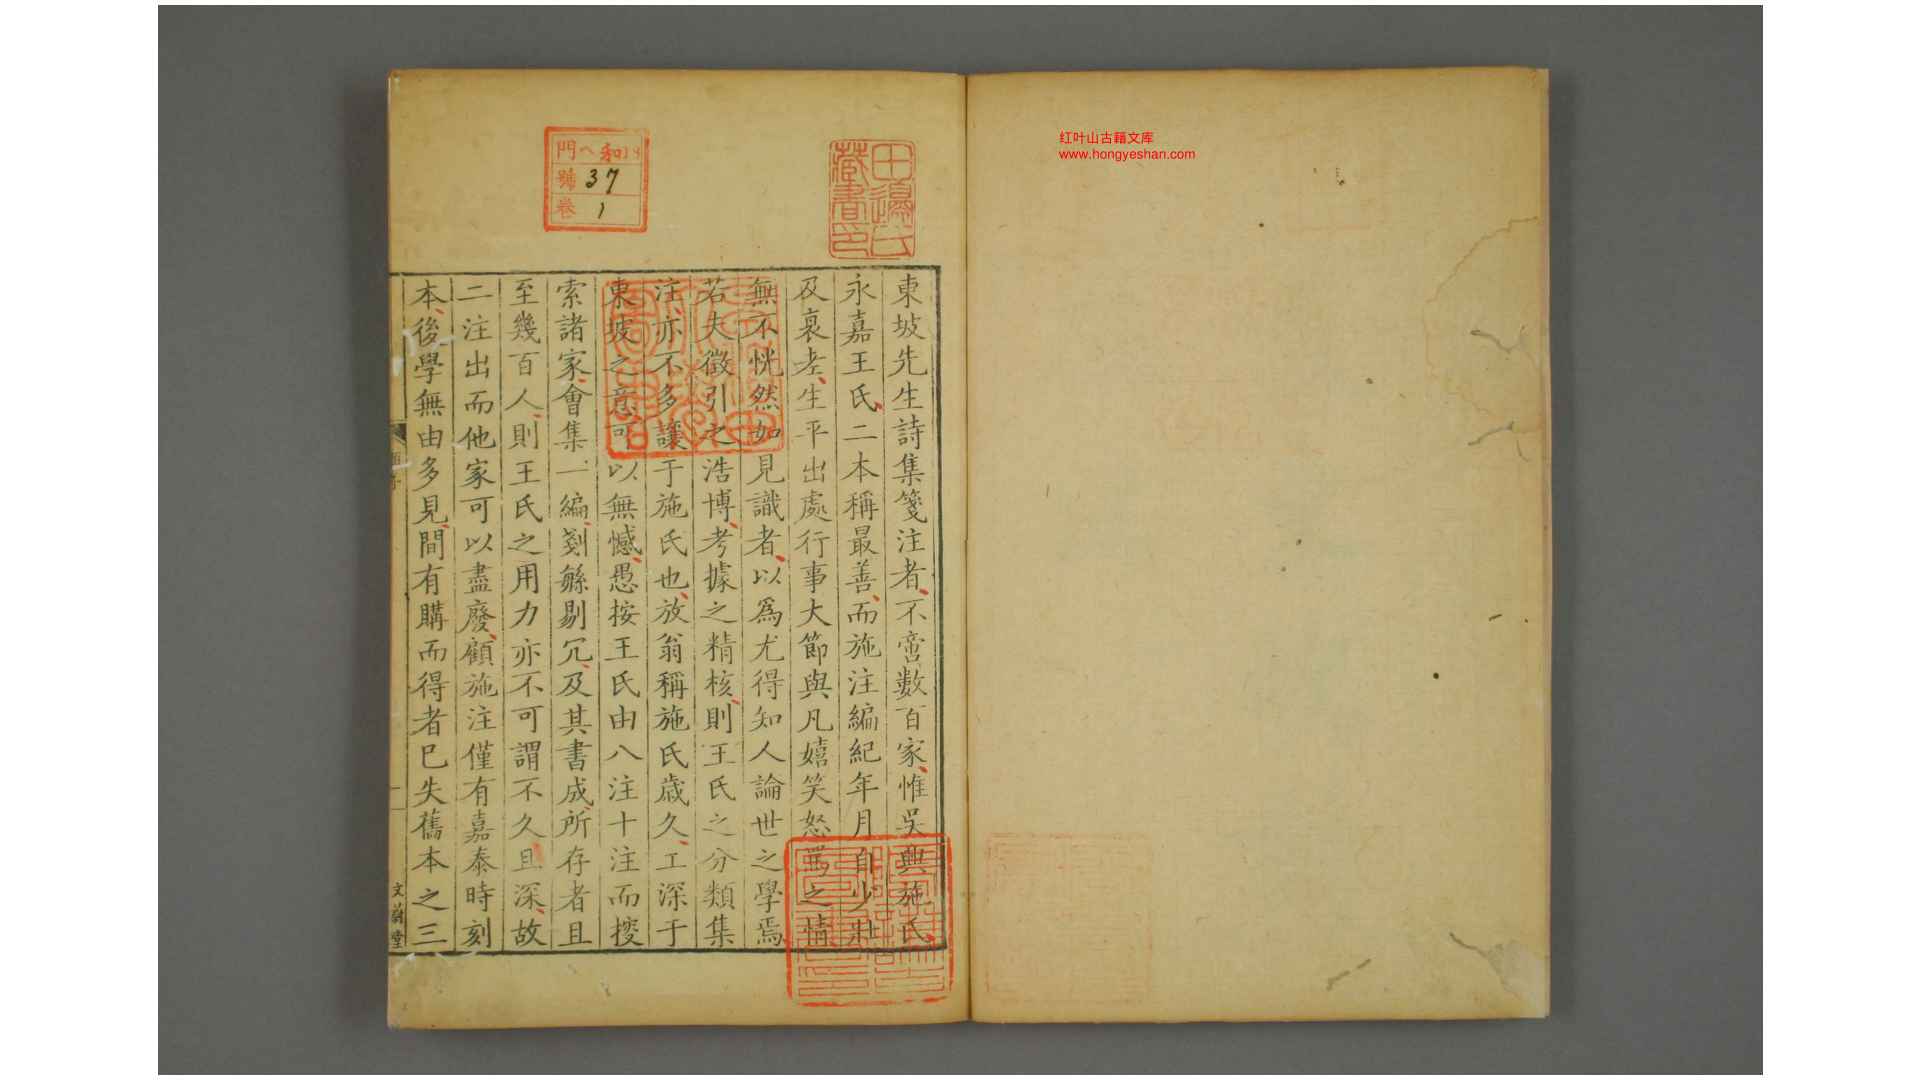 红叶山古籍文库
www.hongyeshan.com
田邊氏
藏書印
門 八和
號 37
卷 1
東坡先生詩集箋注者不啻數百家惟吳興施氏
永嘉王氏二本稱最善而施注編紀年月自少壯
及衰老生平出處行事大節與凡嬉笑怒罵之情
無不恍然如見識者以爲尤得知人論世之學焉
若夫徵引之浩博考據之精核則王氏之分類集
注亦不多讓于施氏也放翁稱施氏歲久工深于
東坡之意可以無憾愚按王氏由八注十注而搜
索諸家會集一編剗繇剔冗及其書成所存者且
至幾百人則王氏之用力亦不可謂不久且深故
二注出而他家可以盡廢顧施注僅有嘉泰時刻
本後學無由多見間有購而得者巳失舊本之三
文蔚堂